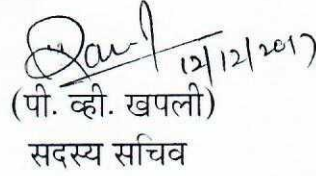 12/12/2017
(पी. व्ही. खपली)
सदस्य सचिव